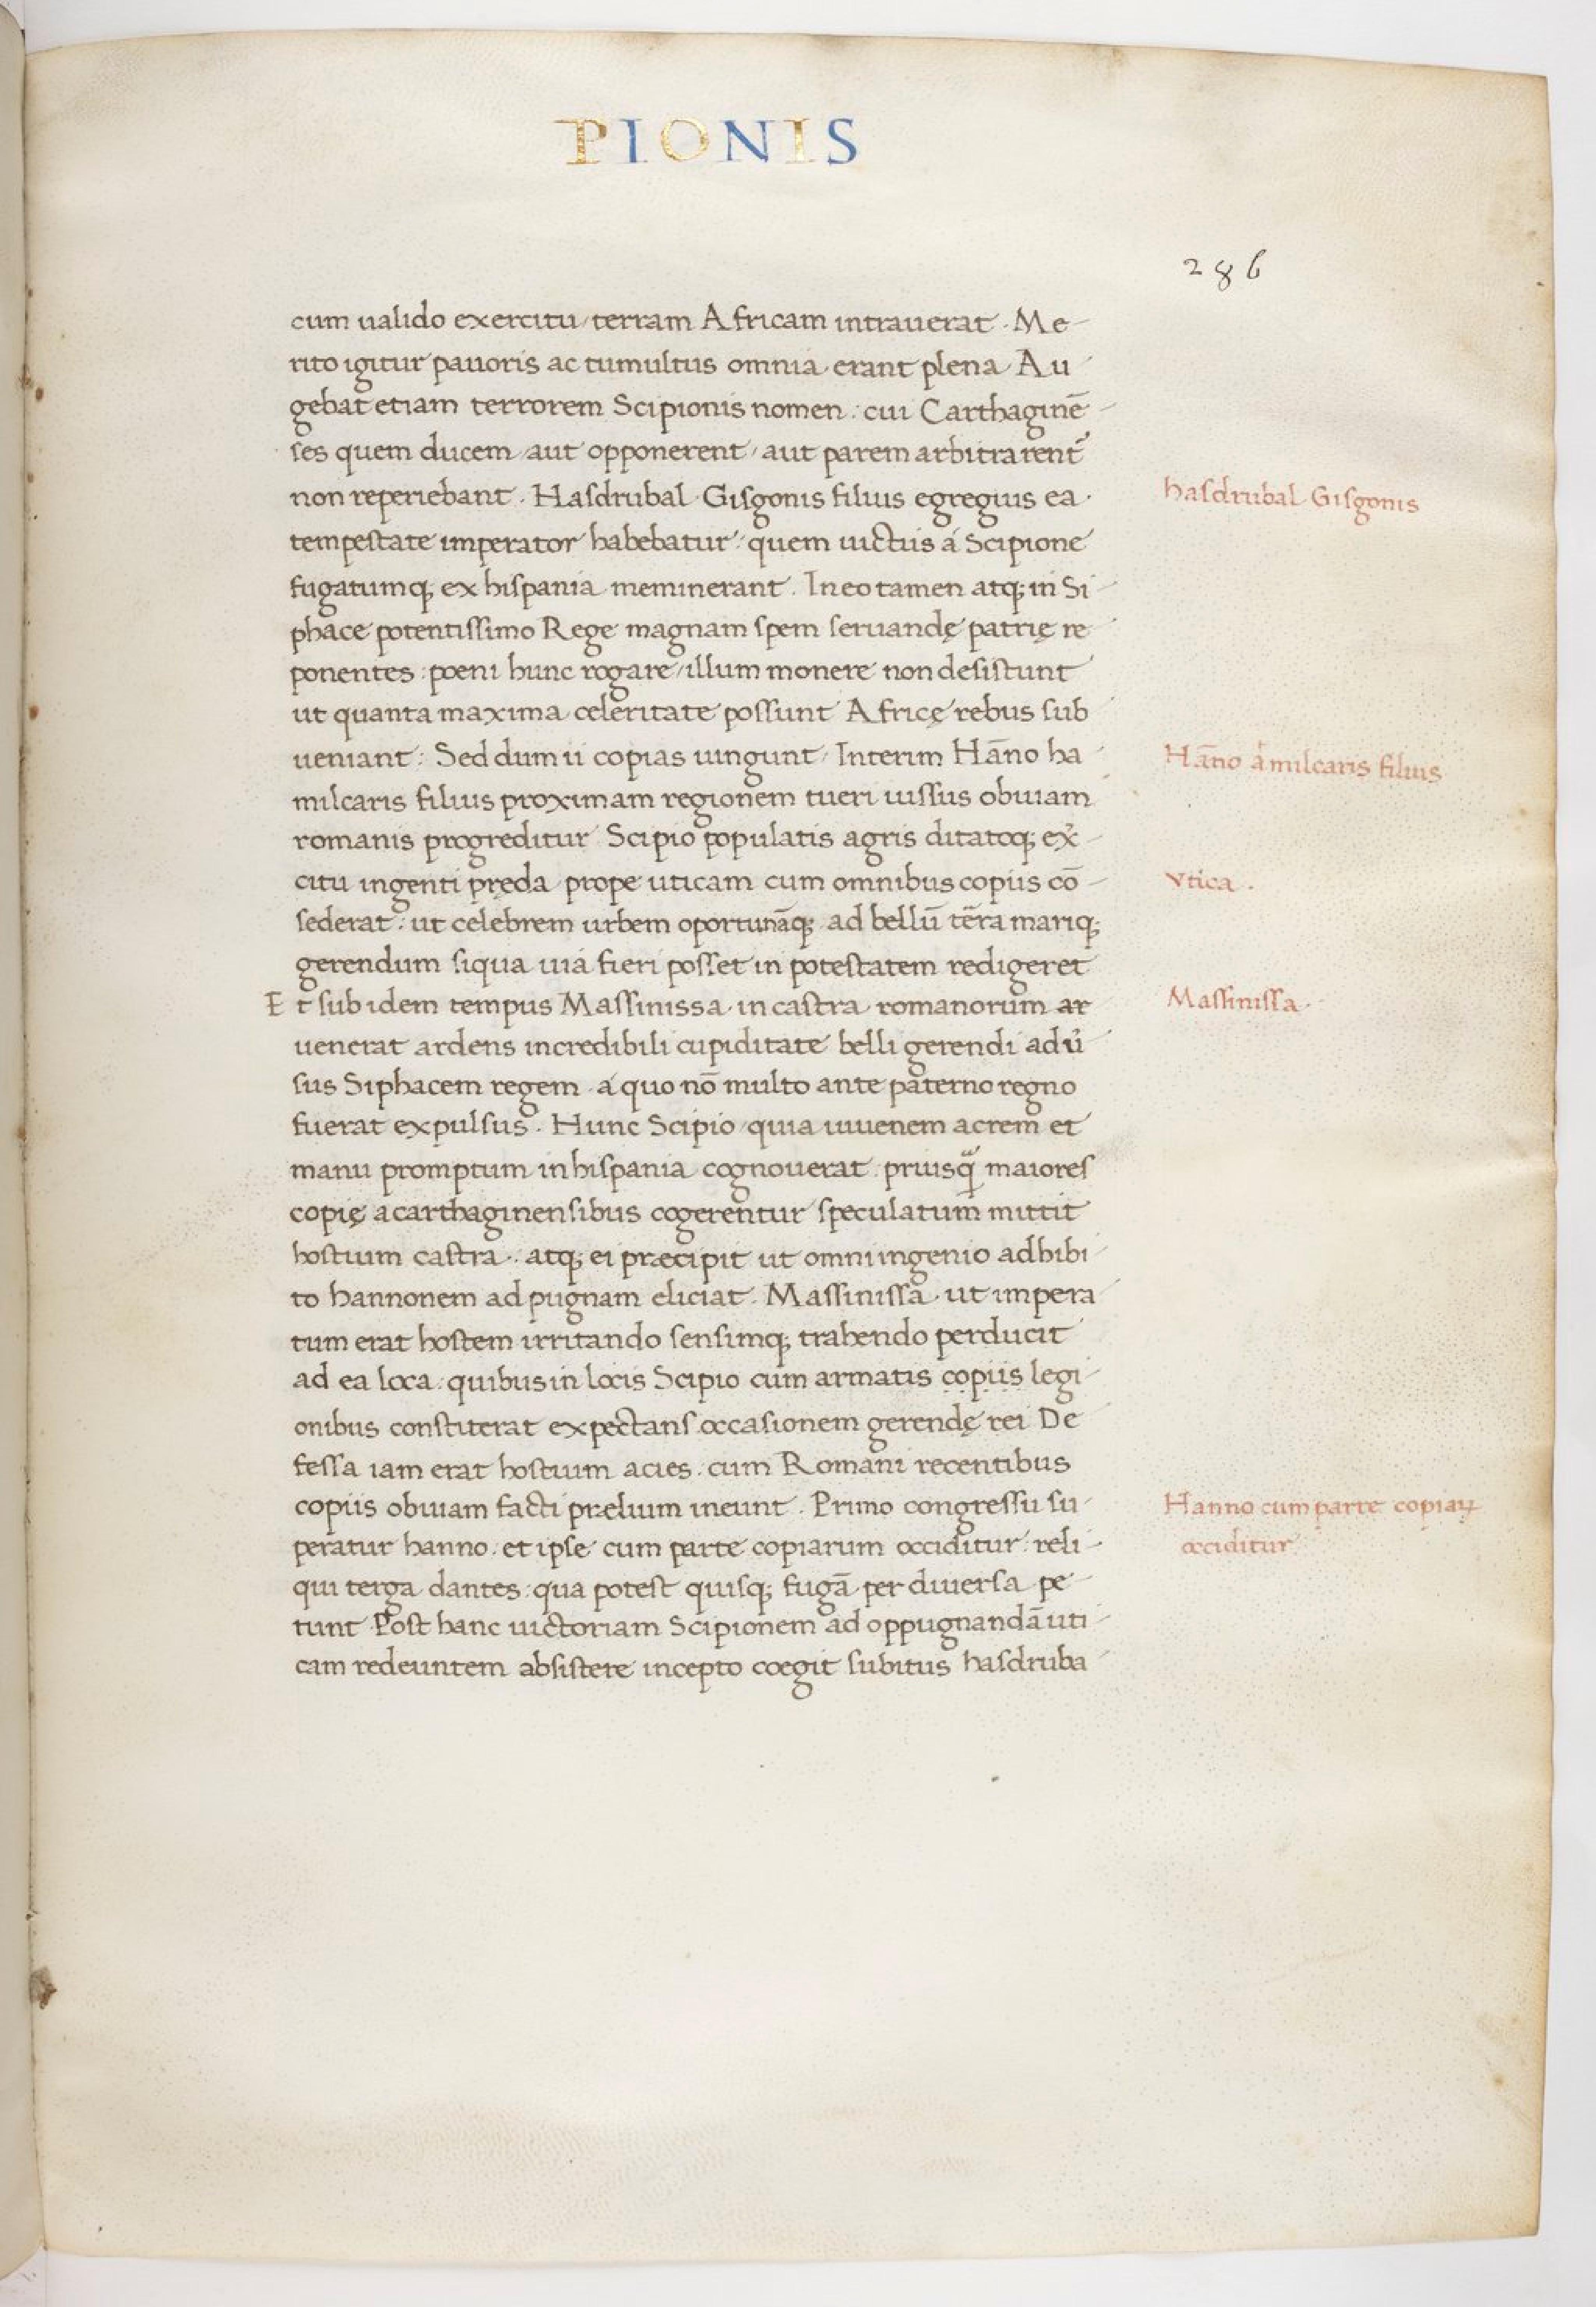 PIONIS
286
cum ualido exercitu terram Africam intrauerat. Me-
rito igitur pauoris ac tumultus omnia erant plena Au-
gebat etiam terrorem Scipionis nomen: cui Carthaginē-
ses quem ducem aut opponerent, aut parem arbitrarent᷑
non reperiebant. Hasdrubal Gisgonis filius egregius ea
hasdrubal Gisgonis
tempestate imperator habebatur: quem uictus á Scipione
fugatumq; ex hispania meminerant. In eo tamen atq; in Si-
phace potentissimo Rege magnam spem seruandę patrię re-
ponentes: poeni hunc rogare, illum monere non desistunt
ut quanta maxima celeritate possunt Africę rebus sub
ueniant: Sed dum ii copias iungunt, Interim Hāno ha-
Hāno amilcaris filius
milcaris filius proximam regionem tueri iussus obuiam
romanis progreditur Scipio populatis agris ditatoq; ex̉-
citu ingenti pręda prope uticam cum omnibus copiis cō-
vtica.
sederat: ut celebrem urbem oportunāq; ad bellū tēra mariq;
gerendum siqua uiá fieri posset in potestatem redigeret
Et sub idem tempus Massinissa in castra romanorum ar
Massinissa
uenerat ardens incredibili cupiditate belli gerendi adu̓
sus Siphacem regem á quo nō multo ante paterno regno
fuerat expulsus. Hunc Scipio quia iuuenem acrem et
manu promptum in hispania cognouerat priusq̃ maiores
copię a carthaginensibus cogerentur speculatum mittit
hostium castra: atq; ei præcipit ut omni ingenio adhibi-
to hannonem ad pugnam eliciat. Massinissa ut impera
tum erat hostem irritando sensimq; trahendo perducit
ad ea loca: quibus in locis Scipio cum armatis copiis legi-
onibus constiterat expectans occasionem gerendę rei De-
fessa iam erat hostium acies: cum Romani recentibus
copiis obuiam facti prælium ineunt. Primo congressu su-
Hanno cum parte copiaꝝ
peratur hanno: et ipse cum parte copiarum occiditur: reli-
occiditur
qui terga dantes: qua potest quisq; fugā per diuersa pe-
tunt Post hanc uictoriam Scipionem ad oppugnandā uti-
cam redeuntem absistere incepto coegit subitus hasdruba-